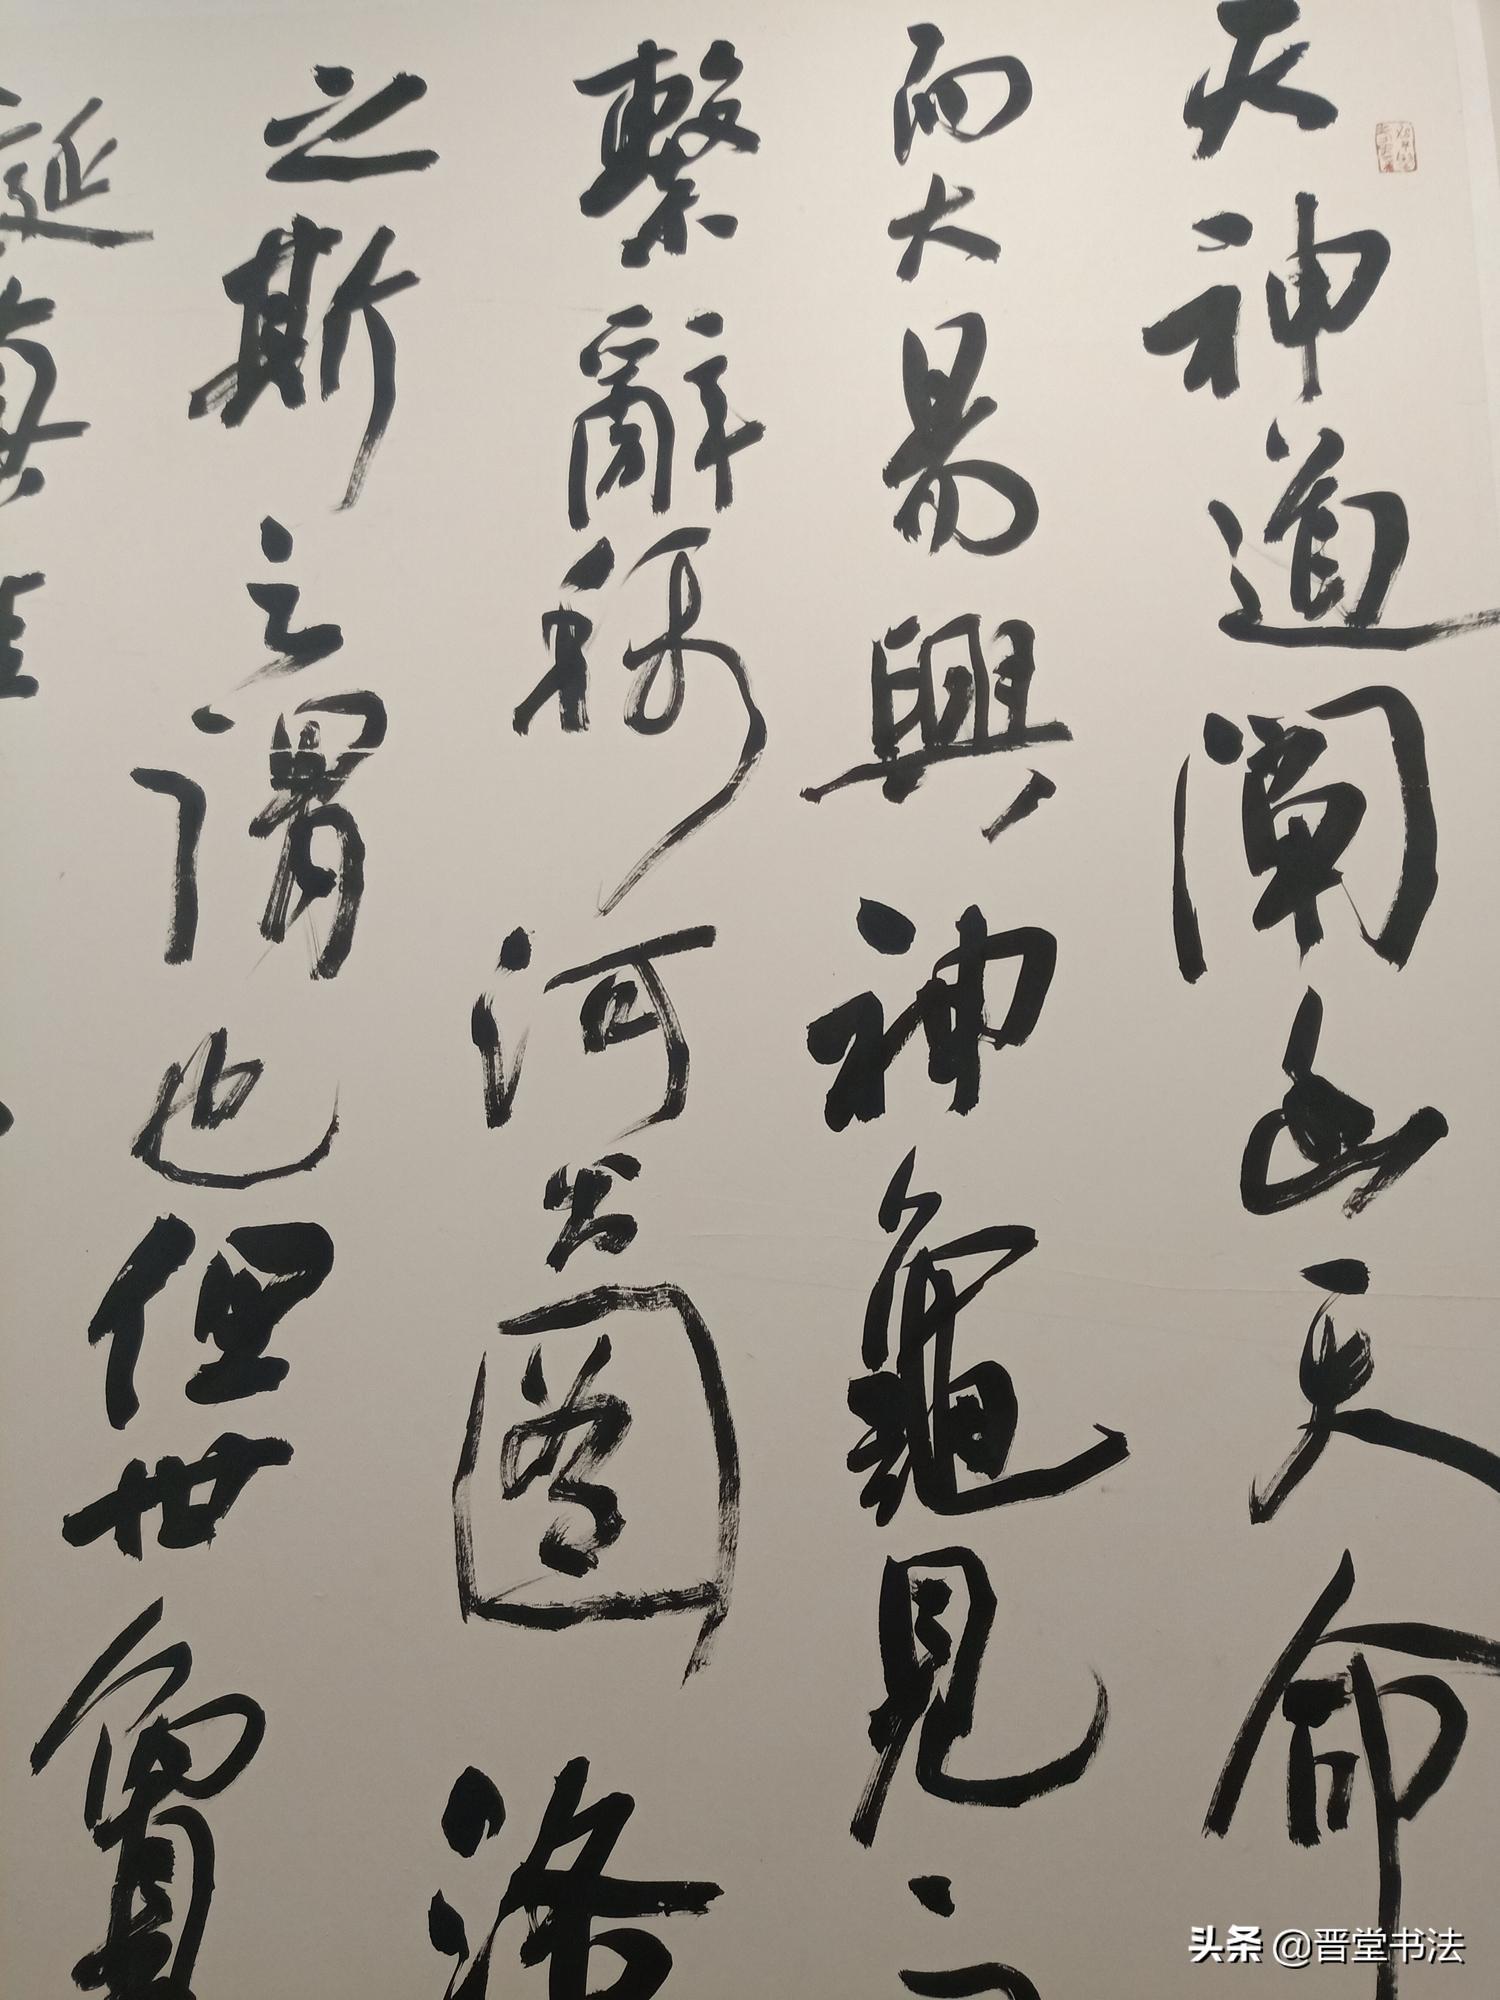 夫神道闡幽天命
而大易興神龜見
繫辭稱河出圖洛
之斯之謂也但世夐
誕真
头条 @晋堂书法